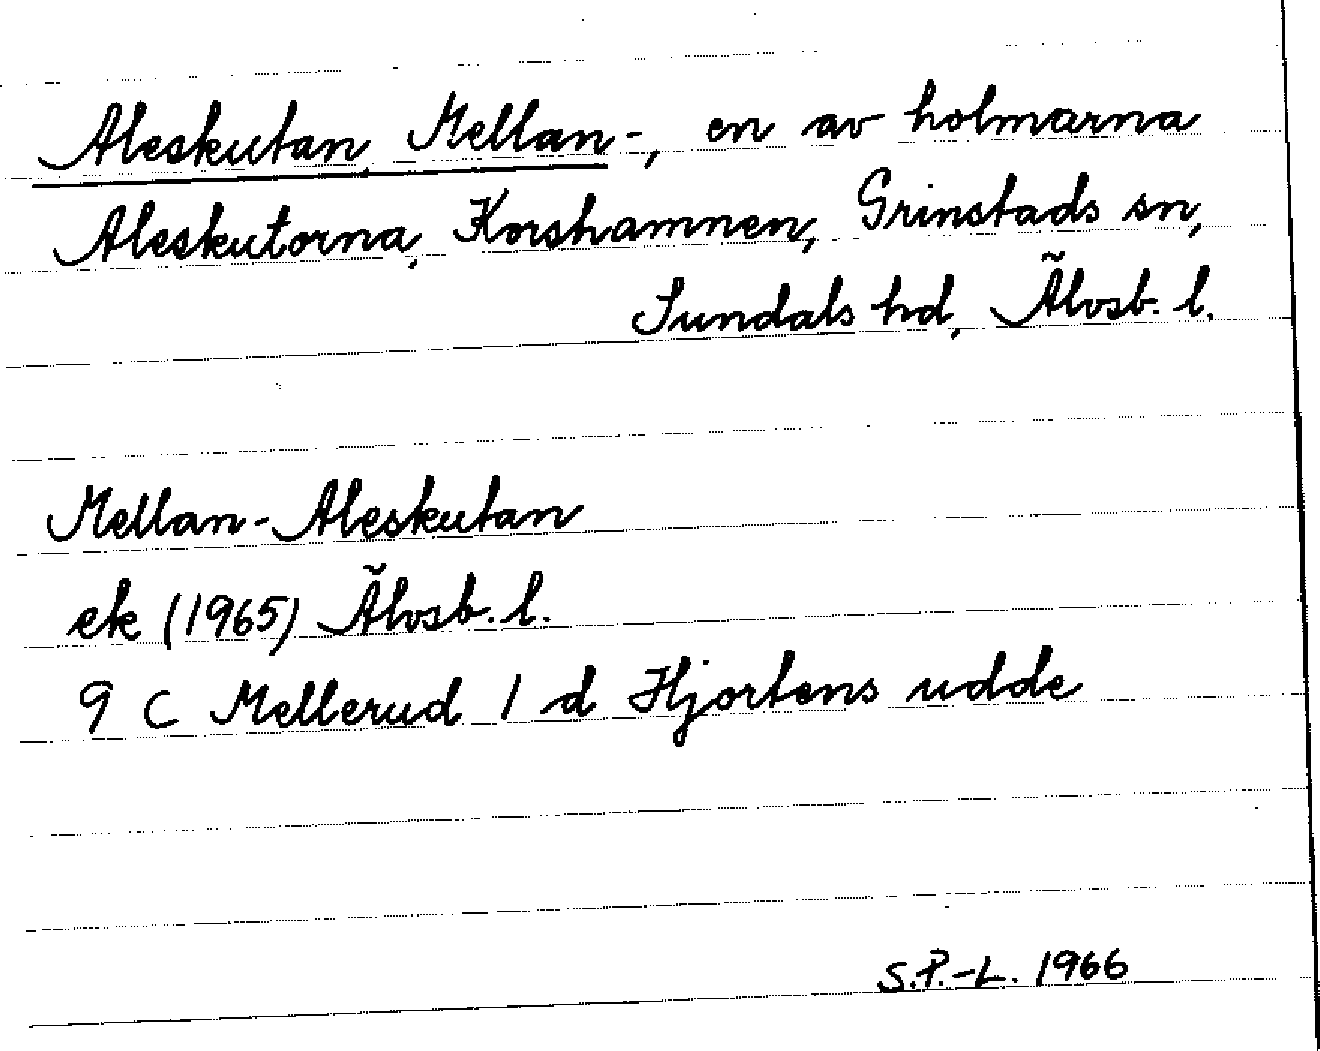 Aleskutan, Mellan-, en av holmarna
Aleskutorna, Korshamnen, Grinstads sn,
Sundals hd, Älvsb. l.
Mellan-Aleskutan
ek (1965) Älvsb. l.
9 C Mellerud 1 d Hjortens udde
S.P.-L. 1966